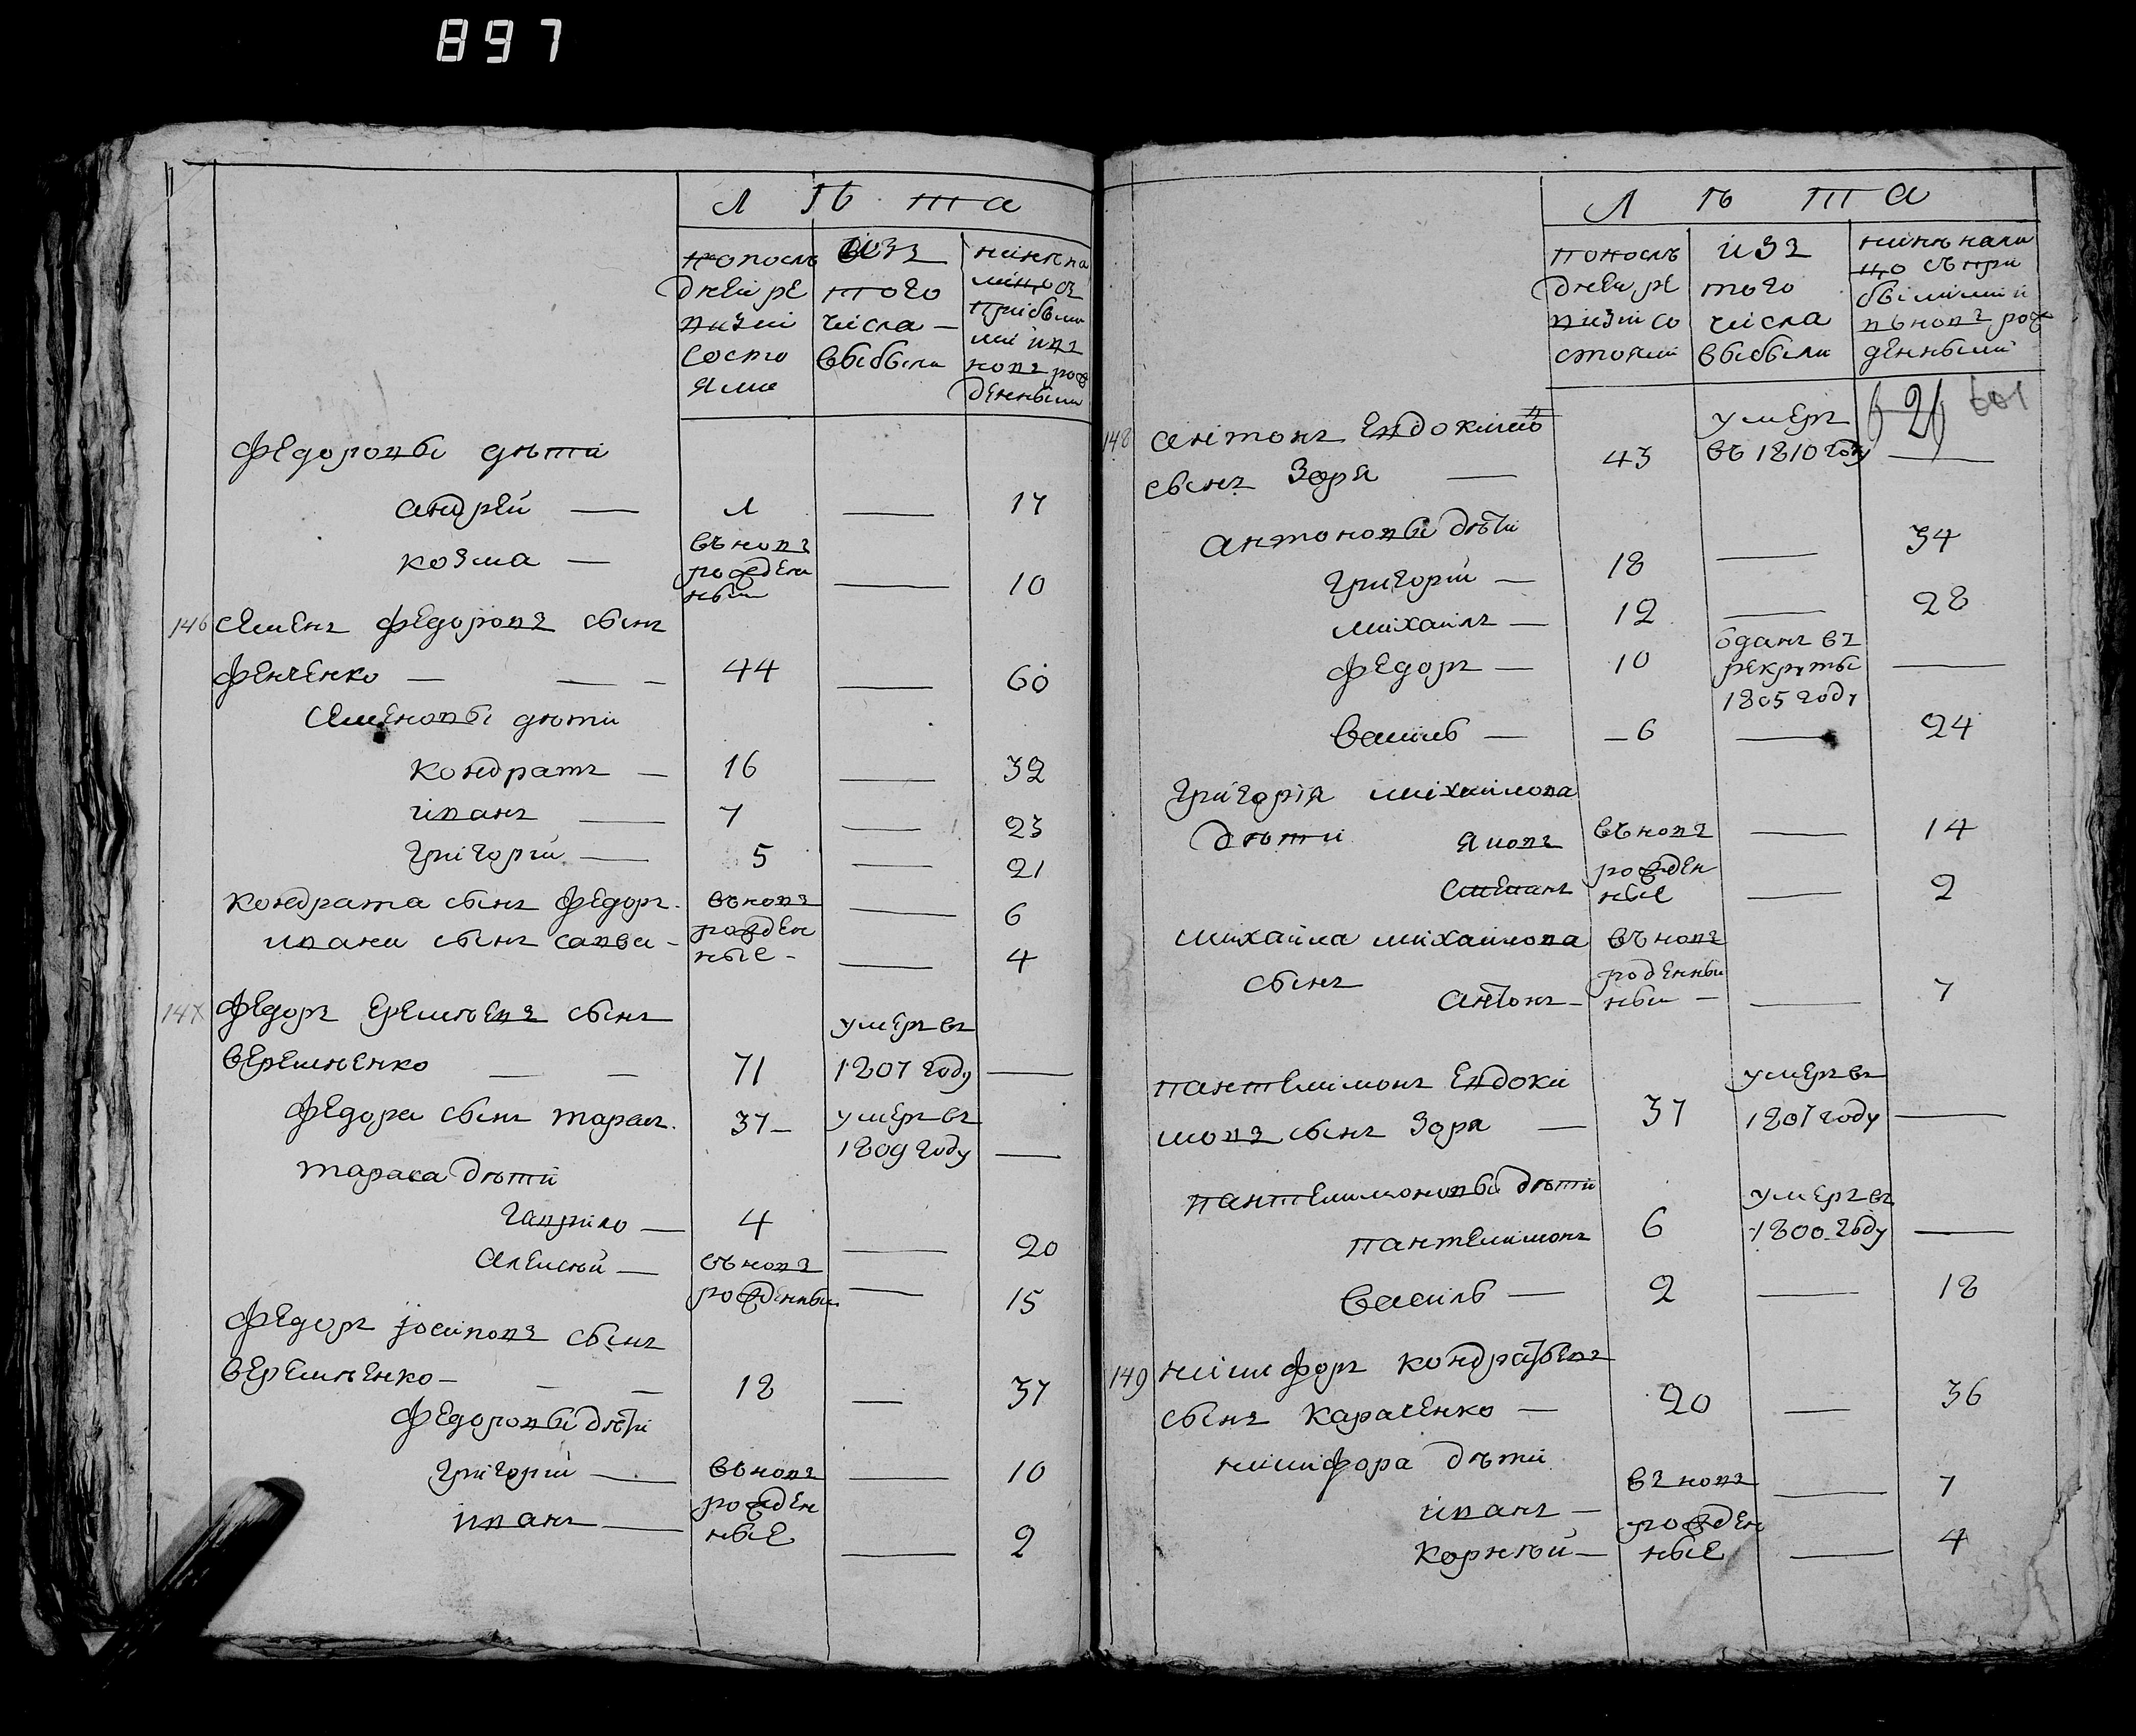 897
Л ѣ та
попослѣ
дней ре
визіи
состо
яло
изъ
того
числа
выбыли
нинѣ на
лицо съ
прибылы
ми и въ
новъ рож
денными
Федоровы дѣти
андрей — 1 — 17
козма — въновъ рожден ный — 10
146 Семенъ федоровъ сынъ
фенченко — 44 — 60
Семеновы дѣти
кондратъ — 16 — 32
иванъ — 7 — 23
григорій — 5 — 21
кондрата сынъ федоръ въновъ — 6
ивана сынъ савва рожден ные — 4
147 Федоръ еремѣевъ сынъ
веремѣенко — 71 умеръ въ 1807 году —
федора сынъ тарасъ 37 умеръ въ 1809 году —
тараса дѣти
гаврило — 4 — 20
Алексѣй — въновъ рожденный — 15
Федоръ іосиповъ сынъ
веремѣенко — 18 — 37
федоровы дѣти
григорій — въновъ — 10
иванъ — рожден ные — 2
Л ѣ т а
попослѣ
дней ре
визіи со
стояли
изъ
того
числа
выбыли
нинѣ нали
цо съ при
былими и
въновъ рож
денными
621 601
148 антонъ Евдокимовъ
сынъ Зоря — 43 умеръ въ 1810 году —
антоновы дѣти
григорій — 18 — 34
михаилъ — 12 — 28
федоръ — 10 отданъ въ рекруты 1805 году —
василь — 6 — 24
григорія михайлова
дѣти яковъ въновъ — 14
степанъ рожден ные — 2
михайла михайлова въновъ
сынъ антонъ — роденный ный — 7
пантелимонъ Евдоки
мовъ сынъ Зоря — 37 умеръ въ 1807 году —
пантелимоновы дѣти
пантелимонъ 6 умеръ въ 1800 году —
василь — 2 — 18
149 никифоръ кондратьевъ
сынъ карасенко — 20 — 36
никифора дѣти
иванъ — въ новъ — 7
корнѣй — рожден ные — 4